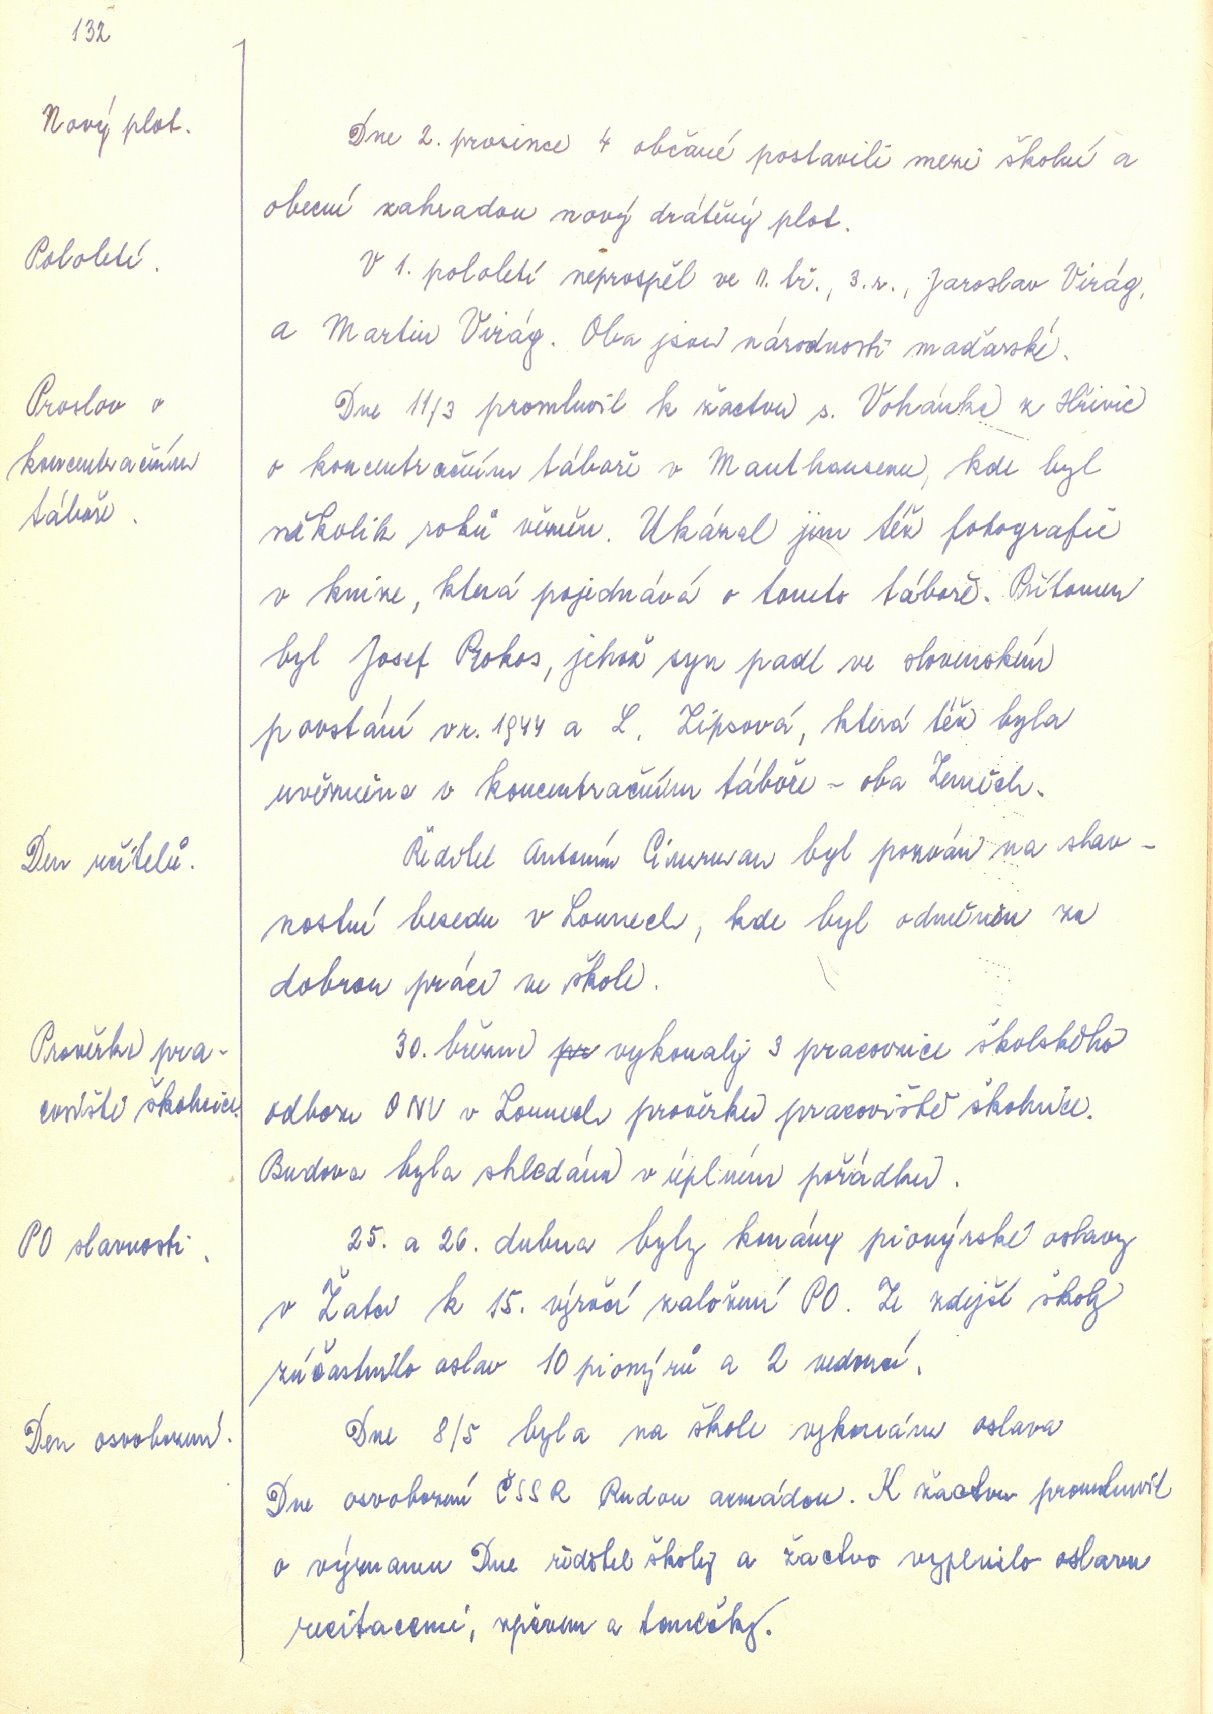 132
Nový plot.
Dne 2. prosince 4 občané postavili mezi školní a
obecní zahradou nový drátěný plot.
Pololetí.
V 1. pololetí neprospěl ve II. tř., 3. r., Jaroslav Virág,
a Martin Virág. Oba jsou národnosti maďarské.
Proslov o
koncentračním
táboře.
Dne 11/3 promluvil k žactvu s. Vohánka z Hřivic
o koncentračním táboře v Mauthausenu, kde byl
několik roků vězněn. Ukázal jim též fotografie
v knize, která pojednává o tomto táboře. Přítomen
byl Josef Prokos, jehož syn padl ve slovenském
povstání v r. 1944 a L. Zipsová, která též byla
uvězněna v koncentračním táboře - oba Zeměch.
Den učitelů.
Ředitel Antonín Cimrman byl pozván na slav-
nostní besedu v Lounech, kde byl odměněn za
dobrou práci ve škole.
Prověrka pra-
coviště školnice.
30. března pr vykonaly 3 pracovnice školského
odboru ONV v Lounech prověrku pracoviště školnice.
Budova byla shledána v úplném pořádku.
PO slavnosti.
25. a 26. dubna byly konány pionýrské oslavy
v Žatci k 15. výročí založení PO. Ze zdejší školy
zúčastnilo oslav 10 pionýrů a 2 vedoucí.
Den osvobození.
Dne 8/5 byla na škole vykonána oslava
Dne osvobození ČSSR Rudou armádou. K žactvu promluvil
o významu Dne ředitel školy a žactvo vyplnilo oslavu
recitacemi, zpěvem a tanečky.